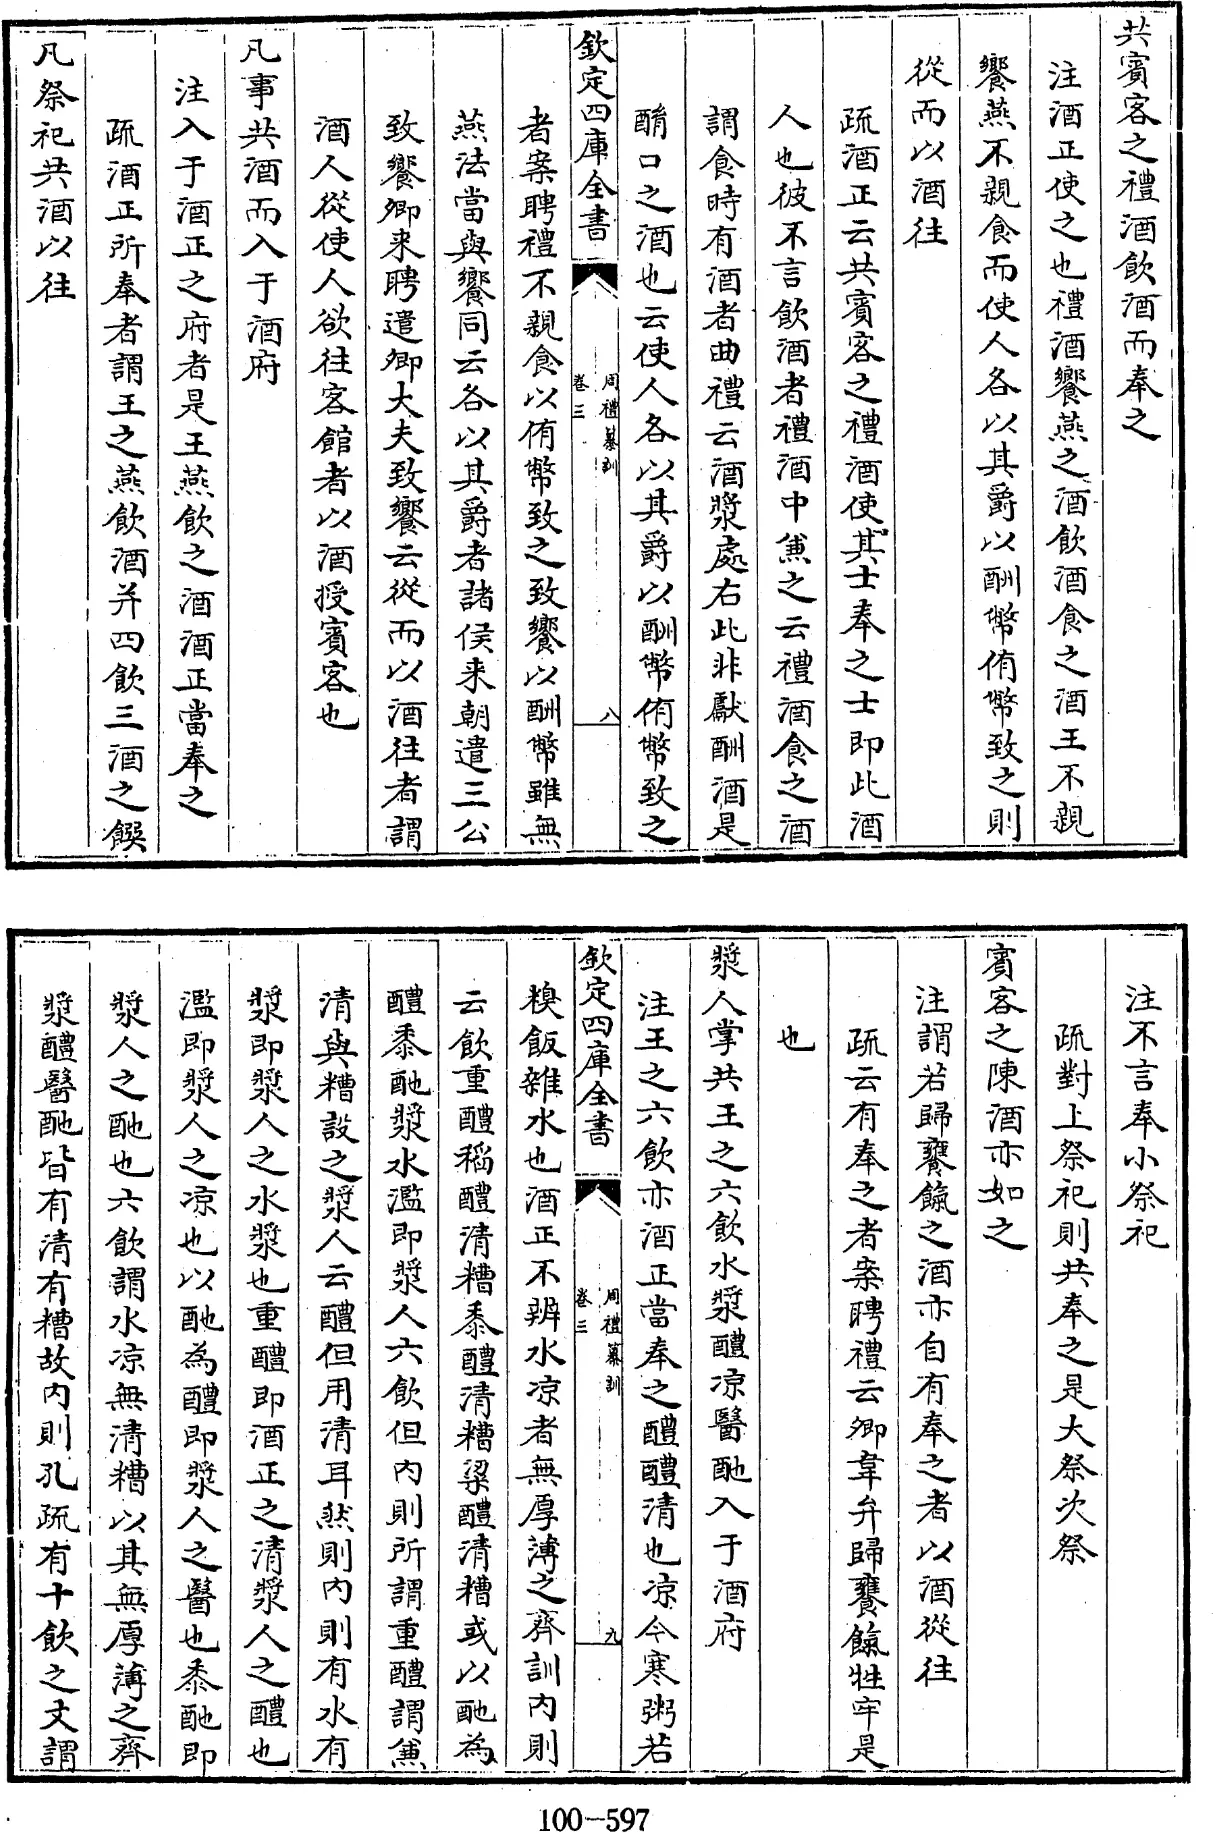 共賓客之禮酒飲酒而奉之
注酒正使之也禮酒饗燕之酒飲酒食之酒王不親
饗燕不親食而使人各以其爵以酬幣侑幣致之則
從而以酒往
疏酒正云共賓客之禮酒使其士奉之士即此酒
人也彼不言飲酒者禮酒中兼之云禮酒食之酒
謂食時有酒者曲禮云酒漿處右此非獻酬酒是
酳口之酒也云使人各以其爵以酬幣侑幣致之
欽定四庫全書
周禮纂訓
卷三
八
者案聘禮不親食以侑幣致之致饗以酬幣雖無
燕法當與饗同云各以其爵者諸侯来朝遣三公
致饗卿来聘遣卿大夫致饗云從而以酒往者謂
酒人從使人欲往客館者以酒授賓客也
凡事共酒而入于酒府
注入于酒正之府者是王燕飲之酒酒正當奉之
疏酒正所奉者謂王之燕飲酒并四飲三酒之饌
凡祭祀共酒以往
注不言奉小祭祀
疏對上祭祀則共奉之是大祭次祭
賓客之陳酒亦如之
注謂若歸饔餼之酒亦自有奉之者以酒從往
疏云有奉之者案聘禮云卿韋弁歸饔餼牲牢是
也
漿人掌共王之六飲水漿醴凉醫酏入于酒府
注王之六飲亦酒正當奉之醴醴清也凉今寒粥若
欽定四庫全書
周禮纂訓
卷三
九
糗飯雜水也酒正不辨水凉者無厚薄之齊訓内則
云飲重醴稻醴清糟黍醴清糟粱醴清糟或以酏為
醴黍酏漿水濫即漿人六飲但内則所謂重醴謂兼
清與糟設之漿人云醴但用清耳然則内則有水有
漿即漿人之水漿也重醴即酒正之清漿人之醴也
濫即漿人之凉也以酏為醴即漿人之醫也黍酏即
漿人之酏也六飲謂水凉無清糟以其無厚薄之齊
漿醴醫酏皆有清有糟故内則孔疏有十飲之文謂
100-597